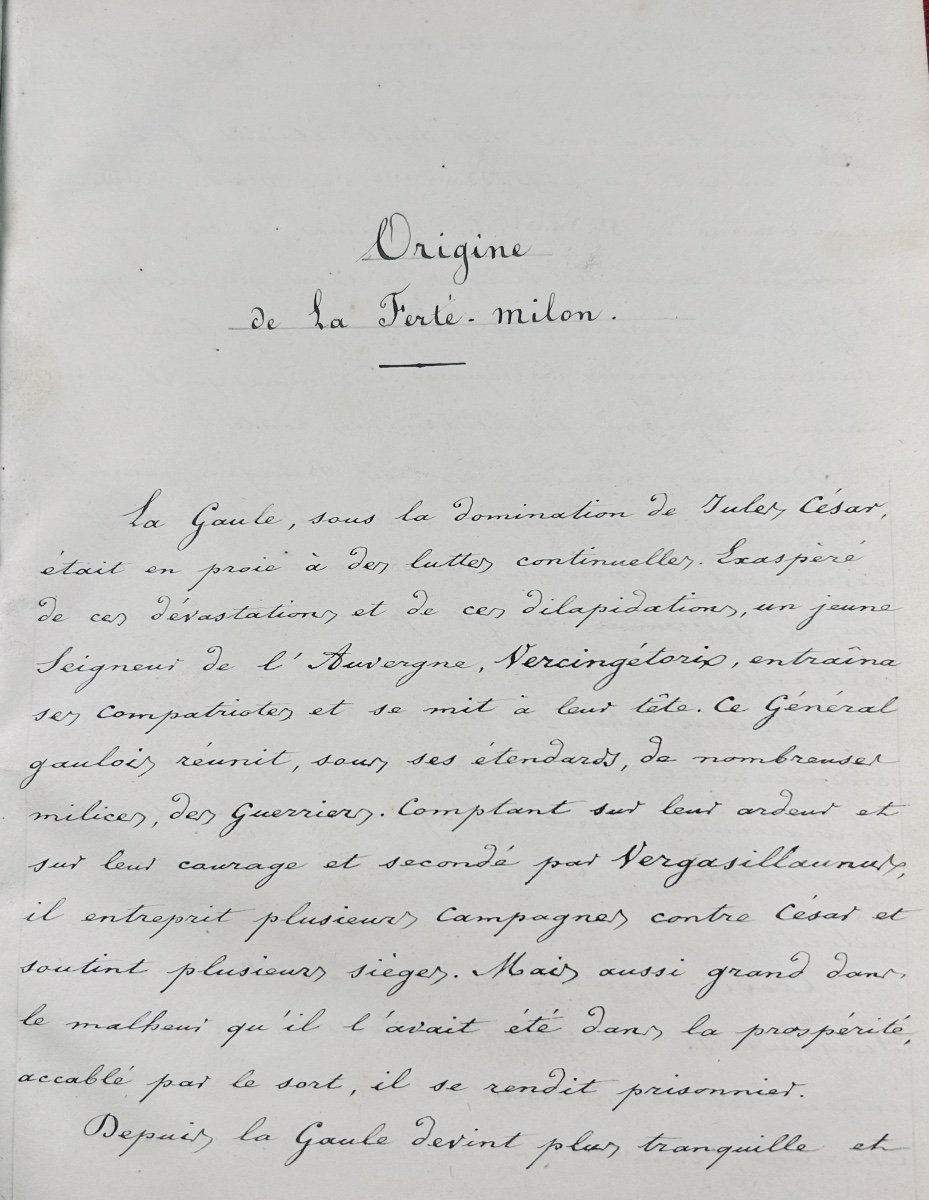 Origine
de La Ferté-milon.
La Gaule, sous la domination de Jules César,
était en proie à des luttes continuelles. Exaspéré
de ces dévastations et de ces dilapidations, un jeune
Seigneur de l'Auvergne, Vercingétorix, entraîna
ses compatriotes et se mit à leur tête. Ce Général
gaulois réunit, sous ses étendards, de nombreuses
milices, des Guerriers. Comptant sur leur ardeur et
sur leur courage et secondé par Vergasillaunus,
il entreprit plusieurs campagnes contre César et
soutint plusieurs sièges. Mais aussi grand dans
le malheur qu'il l'avait été dans la prospérité,
accablé par le sort, il se rendit prisonnier.
Depuis la Gaule devint plus tranquille et